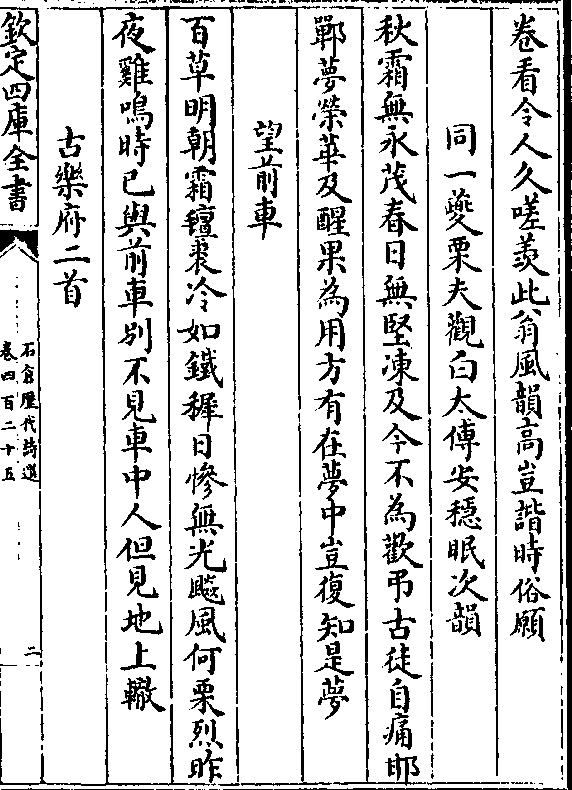 卷看令人久嗟羨此翁風韻高豈諧時俗願
同一夔栗夫觀白太傅安穏眠次韻
秋霜無永茂春日無堅凍及今不為歡弔古徒自痛邯
鄲夢榮華及醒果為用方有在夢中豈復知是夢
望前車
百草明朝霜氊裘冷如鐵穉日慘無光飈風何栗烈昨
夜雞鳴時已與前車別不見車中人但見地上轍
古樂府二首
欽定四庫全書
石倉歷代詩選
卷四百二十五
二